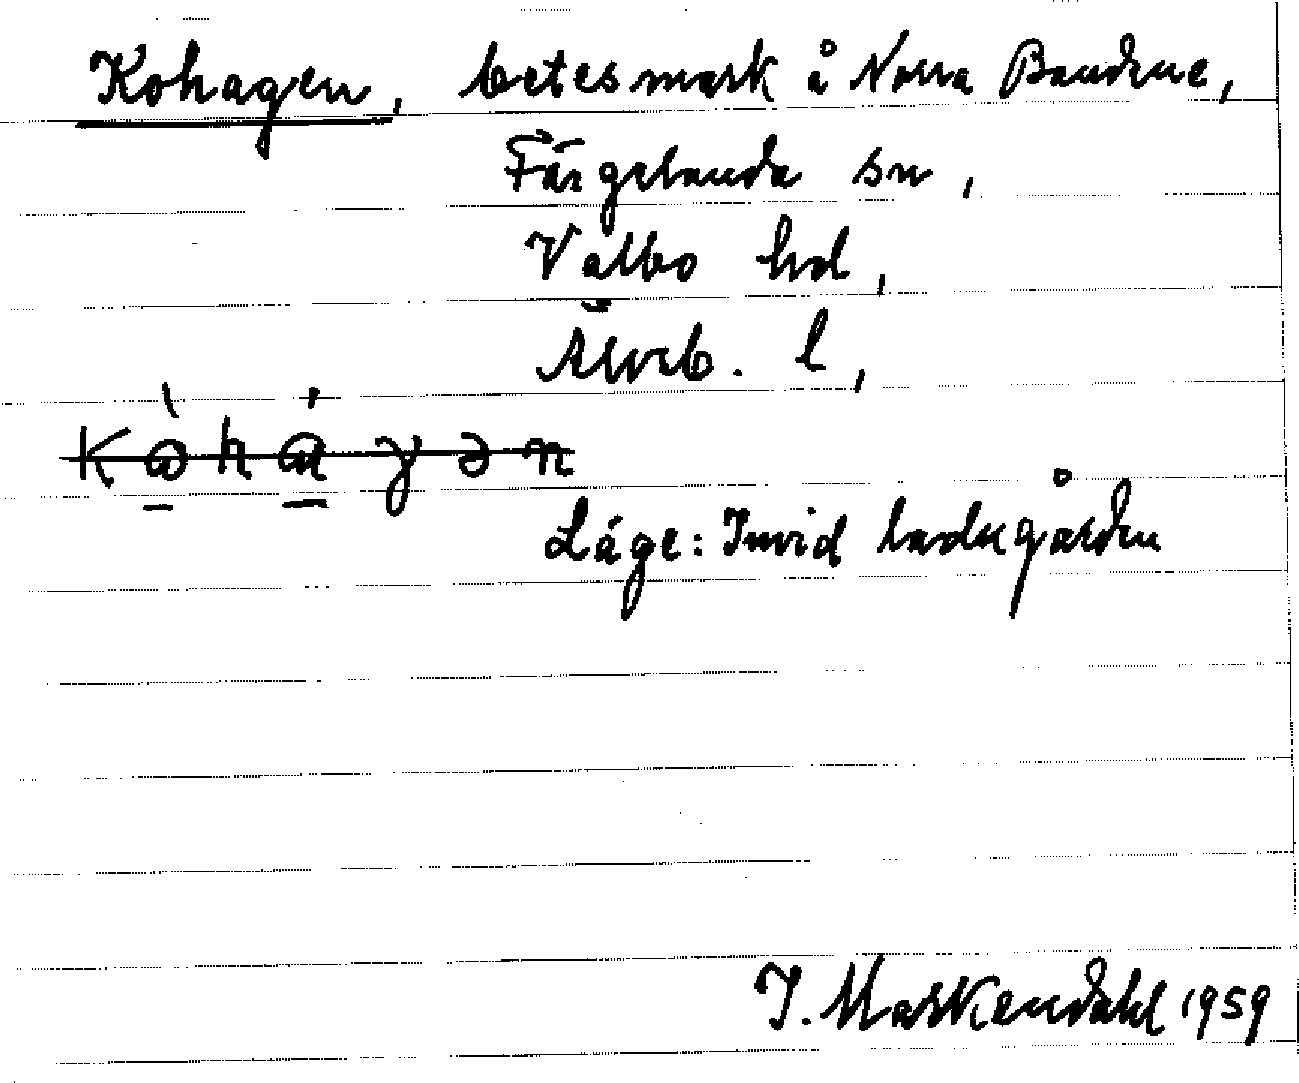 Kohagen, betesmark å Norra Bandene,
Färgelanda sn,
Valbo hd,
Älvsb. l,
Läge: Invid ladugården
I. Markendahl 1959